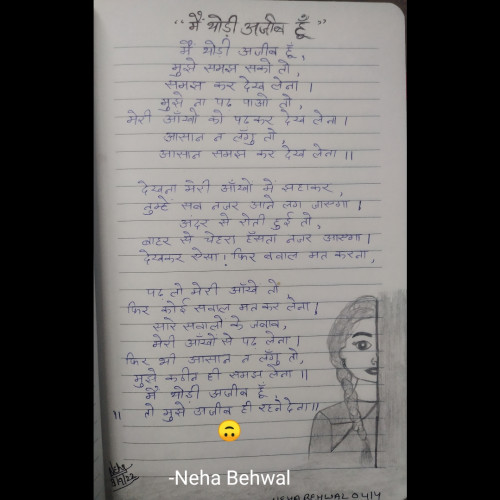 “मैं थोड़ी अजीब हूँ”
मैं थोड़ी अजीब हूँ,
मुझे समझ सको तो,
समझ कर देख लेना।
मुझे ना पढ पाओ तो,
मेरी आँखों को पढकर देख लेना।
आसान न लँगु तो,
आसान समझ कर देख लेना॥
देखना मेरी आँखों में
तुम्हें सब नजर आने लग जाएगा।
अंदर से रोती हुई तो,
बाहर से चेहरा हँसता नजर आएगा।
देखकर ऐसा! फिर बवाल मत करना,
पढ़ तो मेरी आँखें तो
फिर कोई सवाल मत कर लेना।
सारे सवालों के जवाब,
मेरी आँखों से पढ लेना।
फिर भी आसान न लँगु तो,
मुझे कठीन ही समझ लेना॥
मैं थोड़ी अजीब हूँ,
॥ तो मुझे अजीब ही रहने देना॥
🙃
Neha
-Neha Behwal
NEHABEHWAL0414